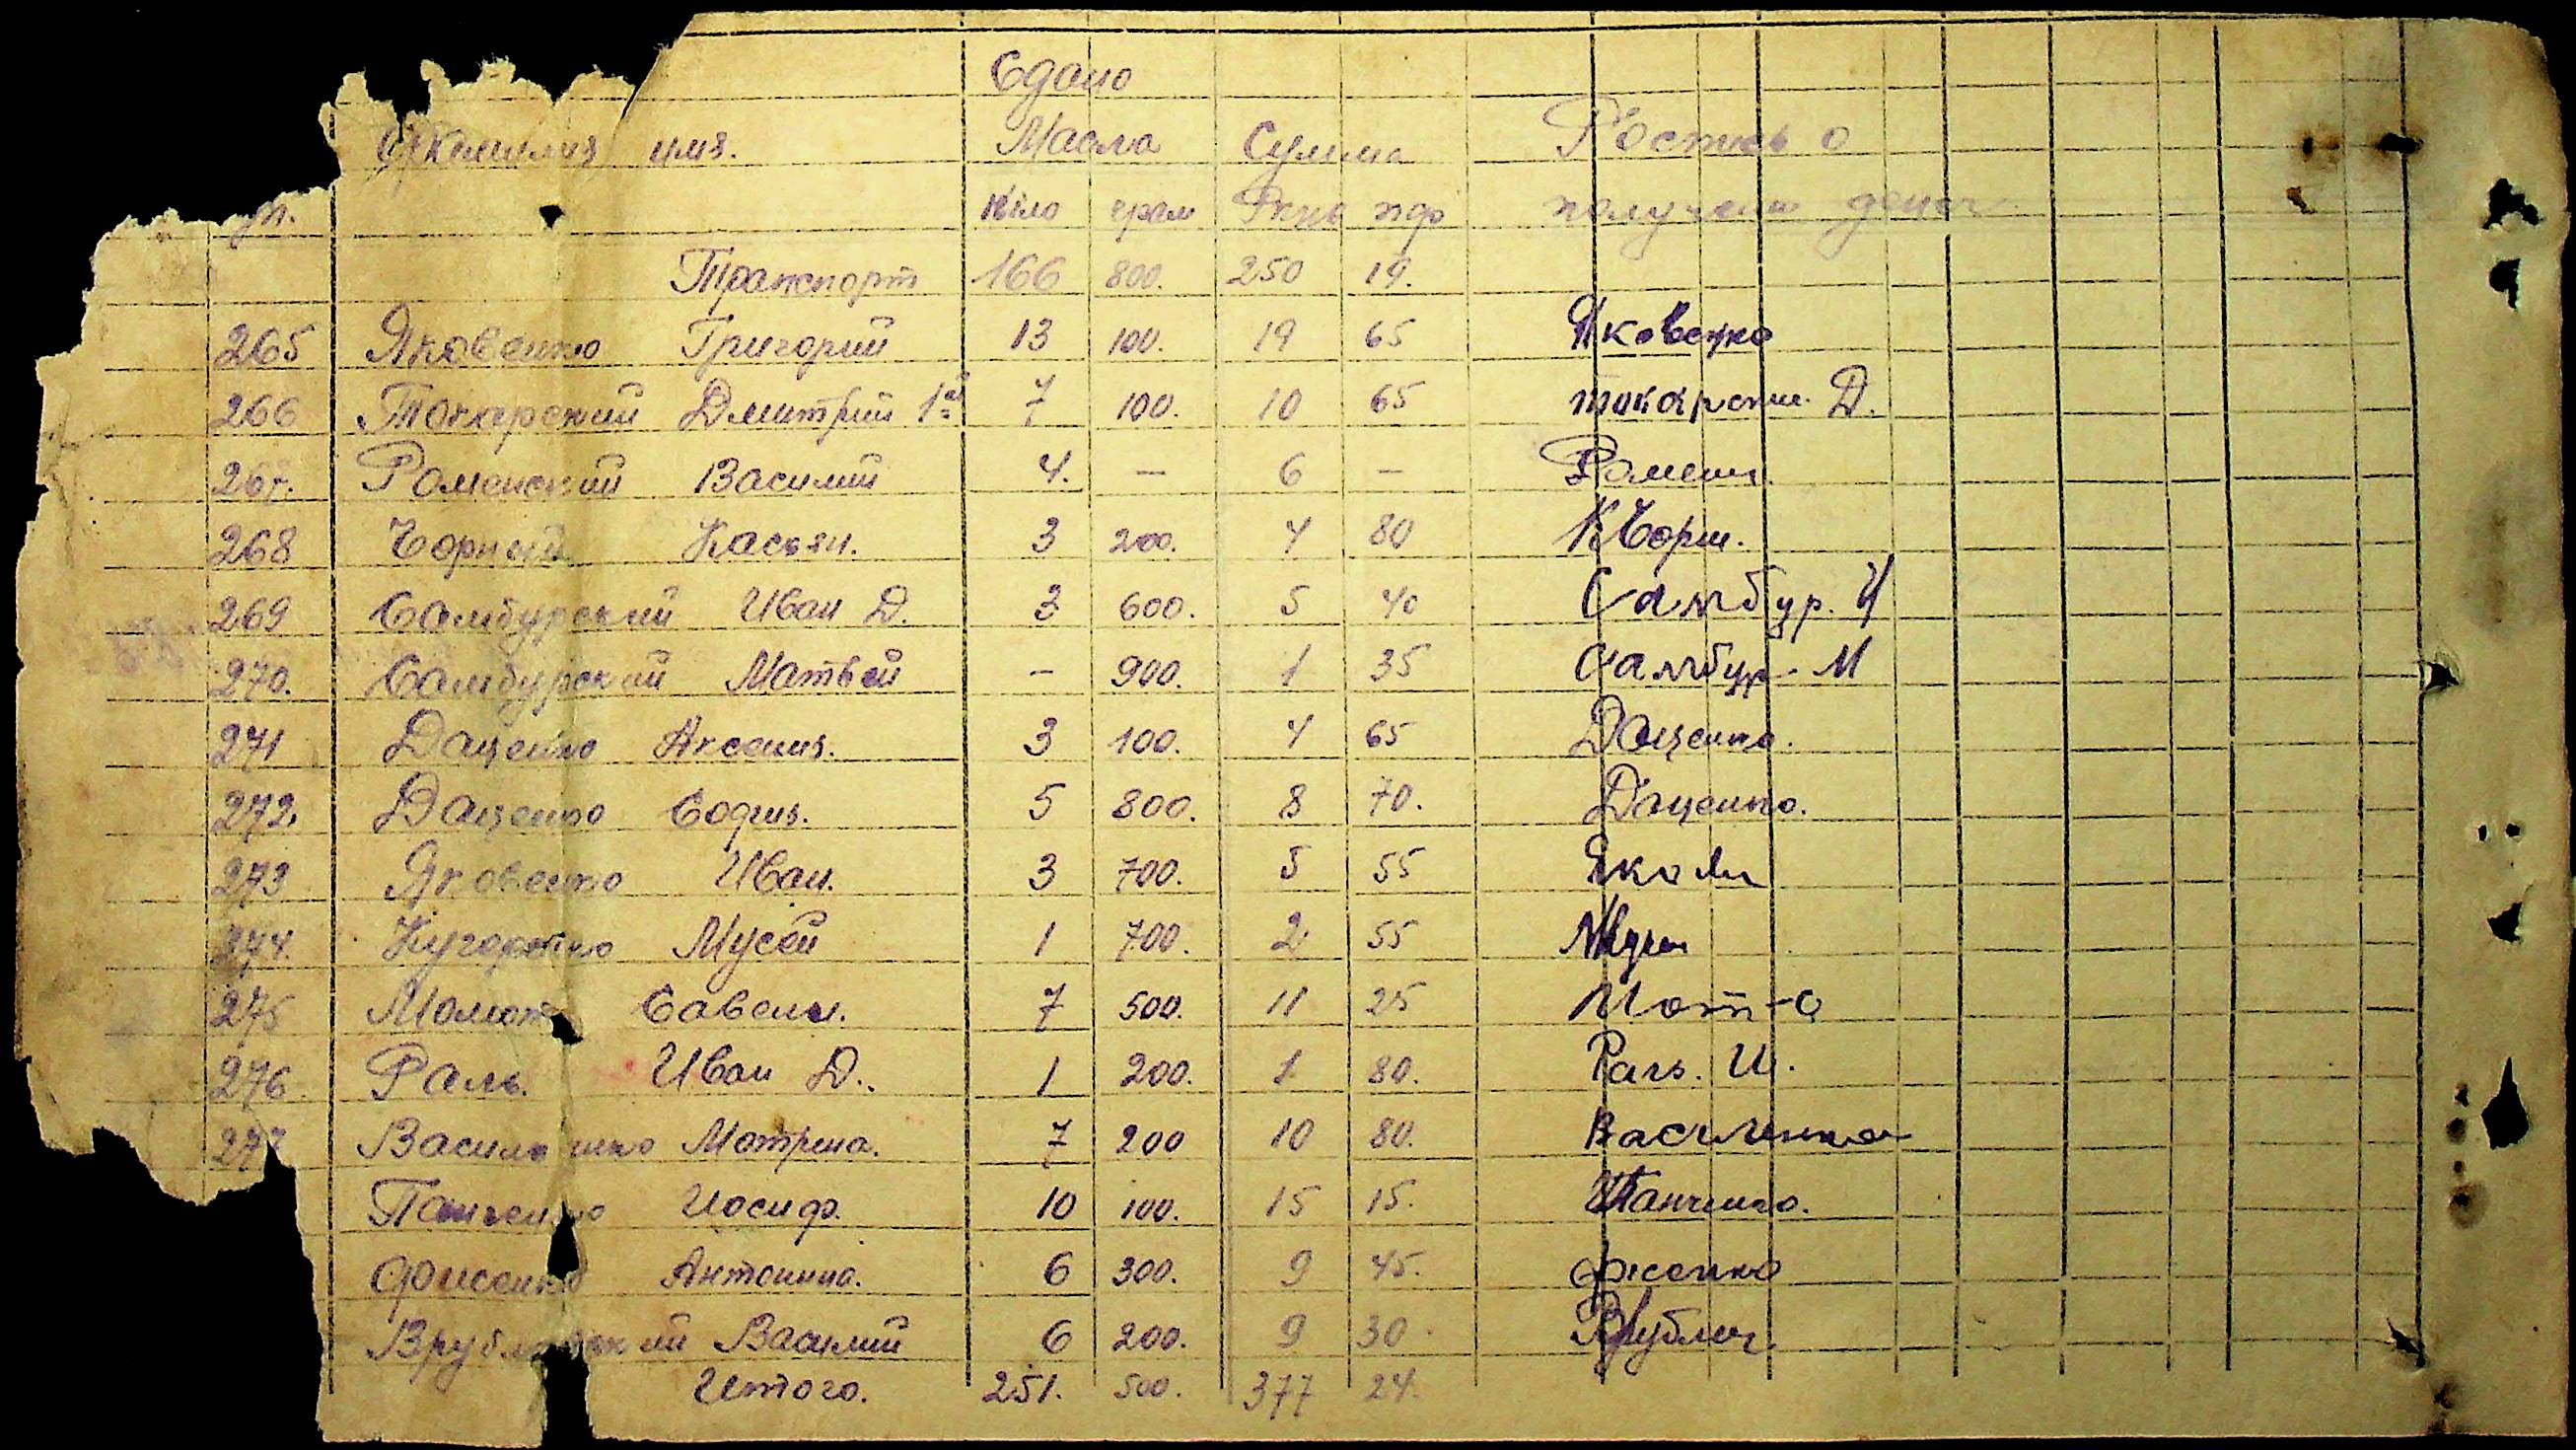 Сдано
Фамилия имя. Масла Сумма Роспись о
п. кіло грам Ркм пф получении денег
Транспорт 166 800. 250 19.
265 Яковенко Григорий 13 100. 19 65 Яковенко
266 Токарский Дмитрий 1й 7 100. 10 65 токарский. Д.
267. Роменский Василий 4. — 6 — Роменск.
268 Чорный Касьян. 3 200. 4 80 КЧорн.
269 Самбурский Иван Д. 3 600. 5 40 Самбур. И
270. Самбурский Матвей – 900. 1 35 Самбур - М
271 Даценко Аксения. 3 100. 4 65 Даценко.
272. Даценко София. 5 800. 8 70. Даценко.
273 Яковенко Иван. 3 700. 5 55
274. Мусей 1 700. 2 55
275 Момот Савелий. 7 500. 11 25
276 Раль. Иван Д. 1 200. 1 80. Раль. И.
277 Василенко Мотрена. 7 200 10 80. Василенко
Панченко Иосиф. 10 100. 15 15. Панченко.
Фисенко Антонина. 6 300. 9 45. Фисенко
Врублевский Василий 6 200. 9 30. Врублев.
Итого. 251. 500. 377 24.